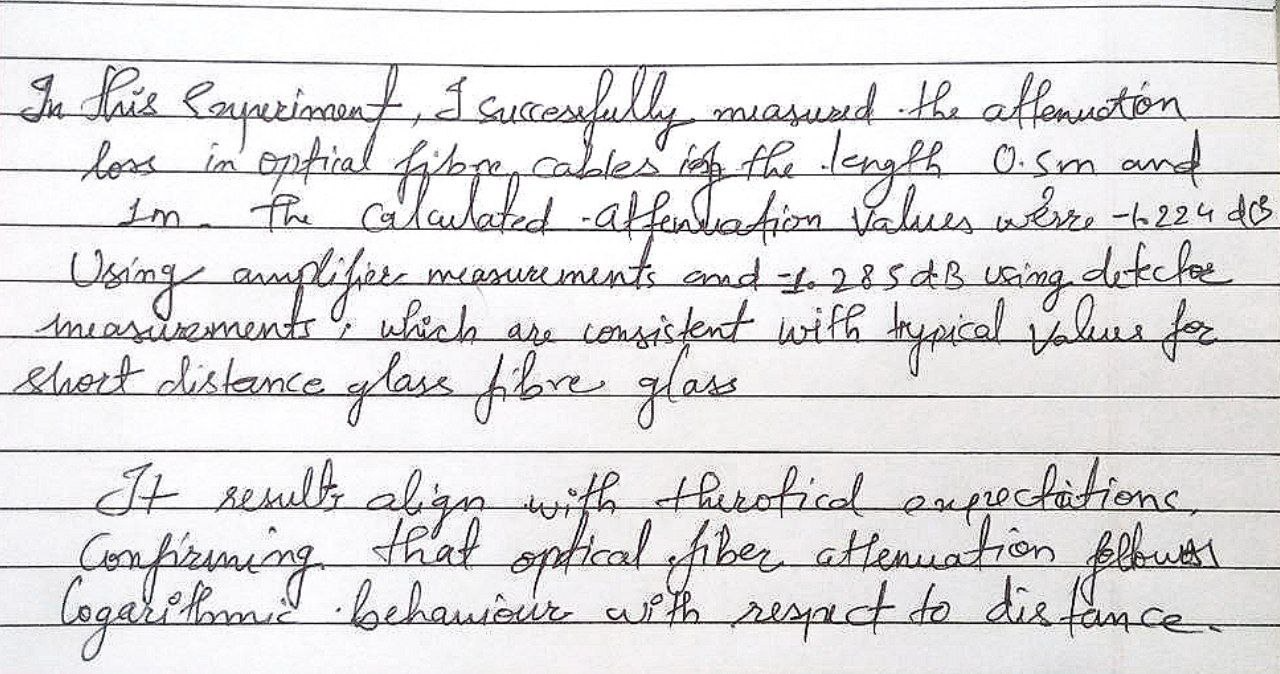 In this Experiment, I succesefully measured the attenuation
loss in optical fibre cables of the length 0.5m and
1m. The calculated attenuation values were -1.224 dB
Using amplifier measurements and -1.285 dB using detector
measurements, which are consistent with typical values for
short distance glass fibre glass
It results align with therotical expectations,
Confirming that optical fiber attenuation follows
logarithmic behaviour with respect to distance.